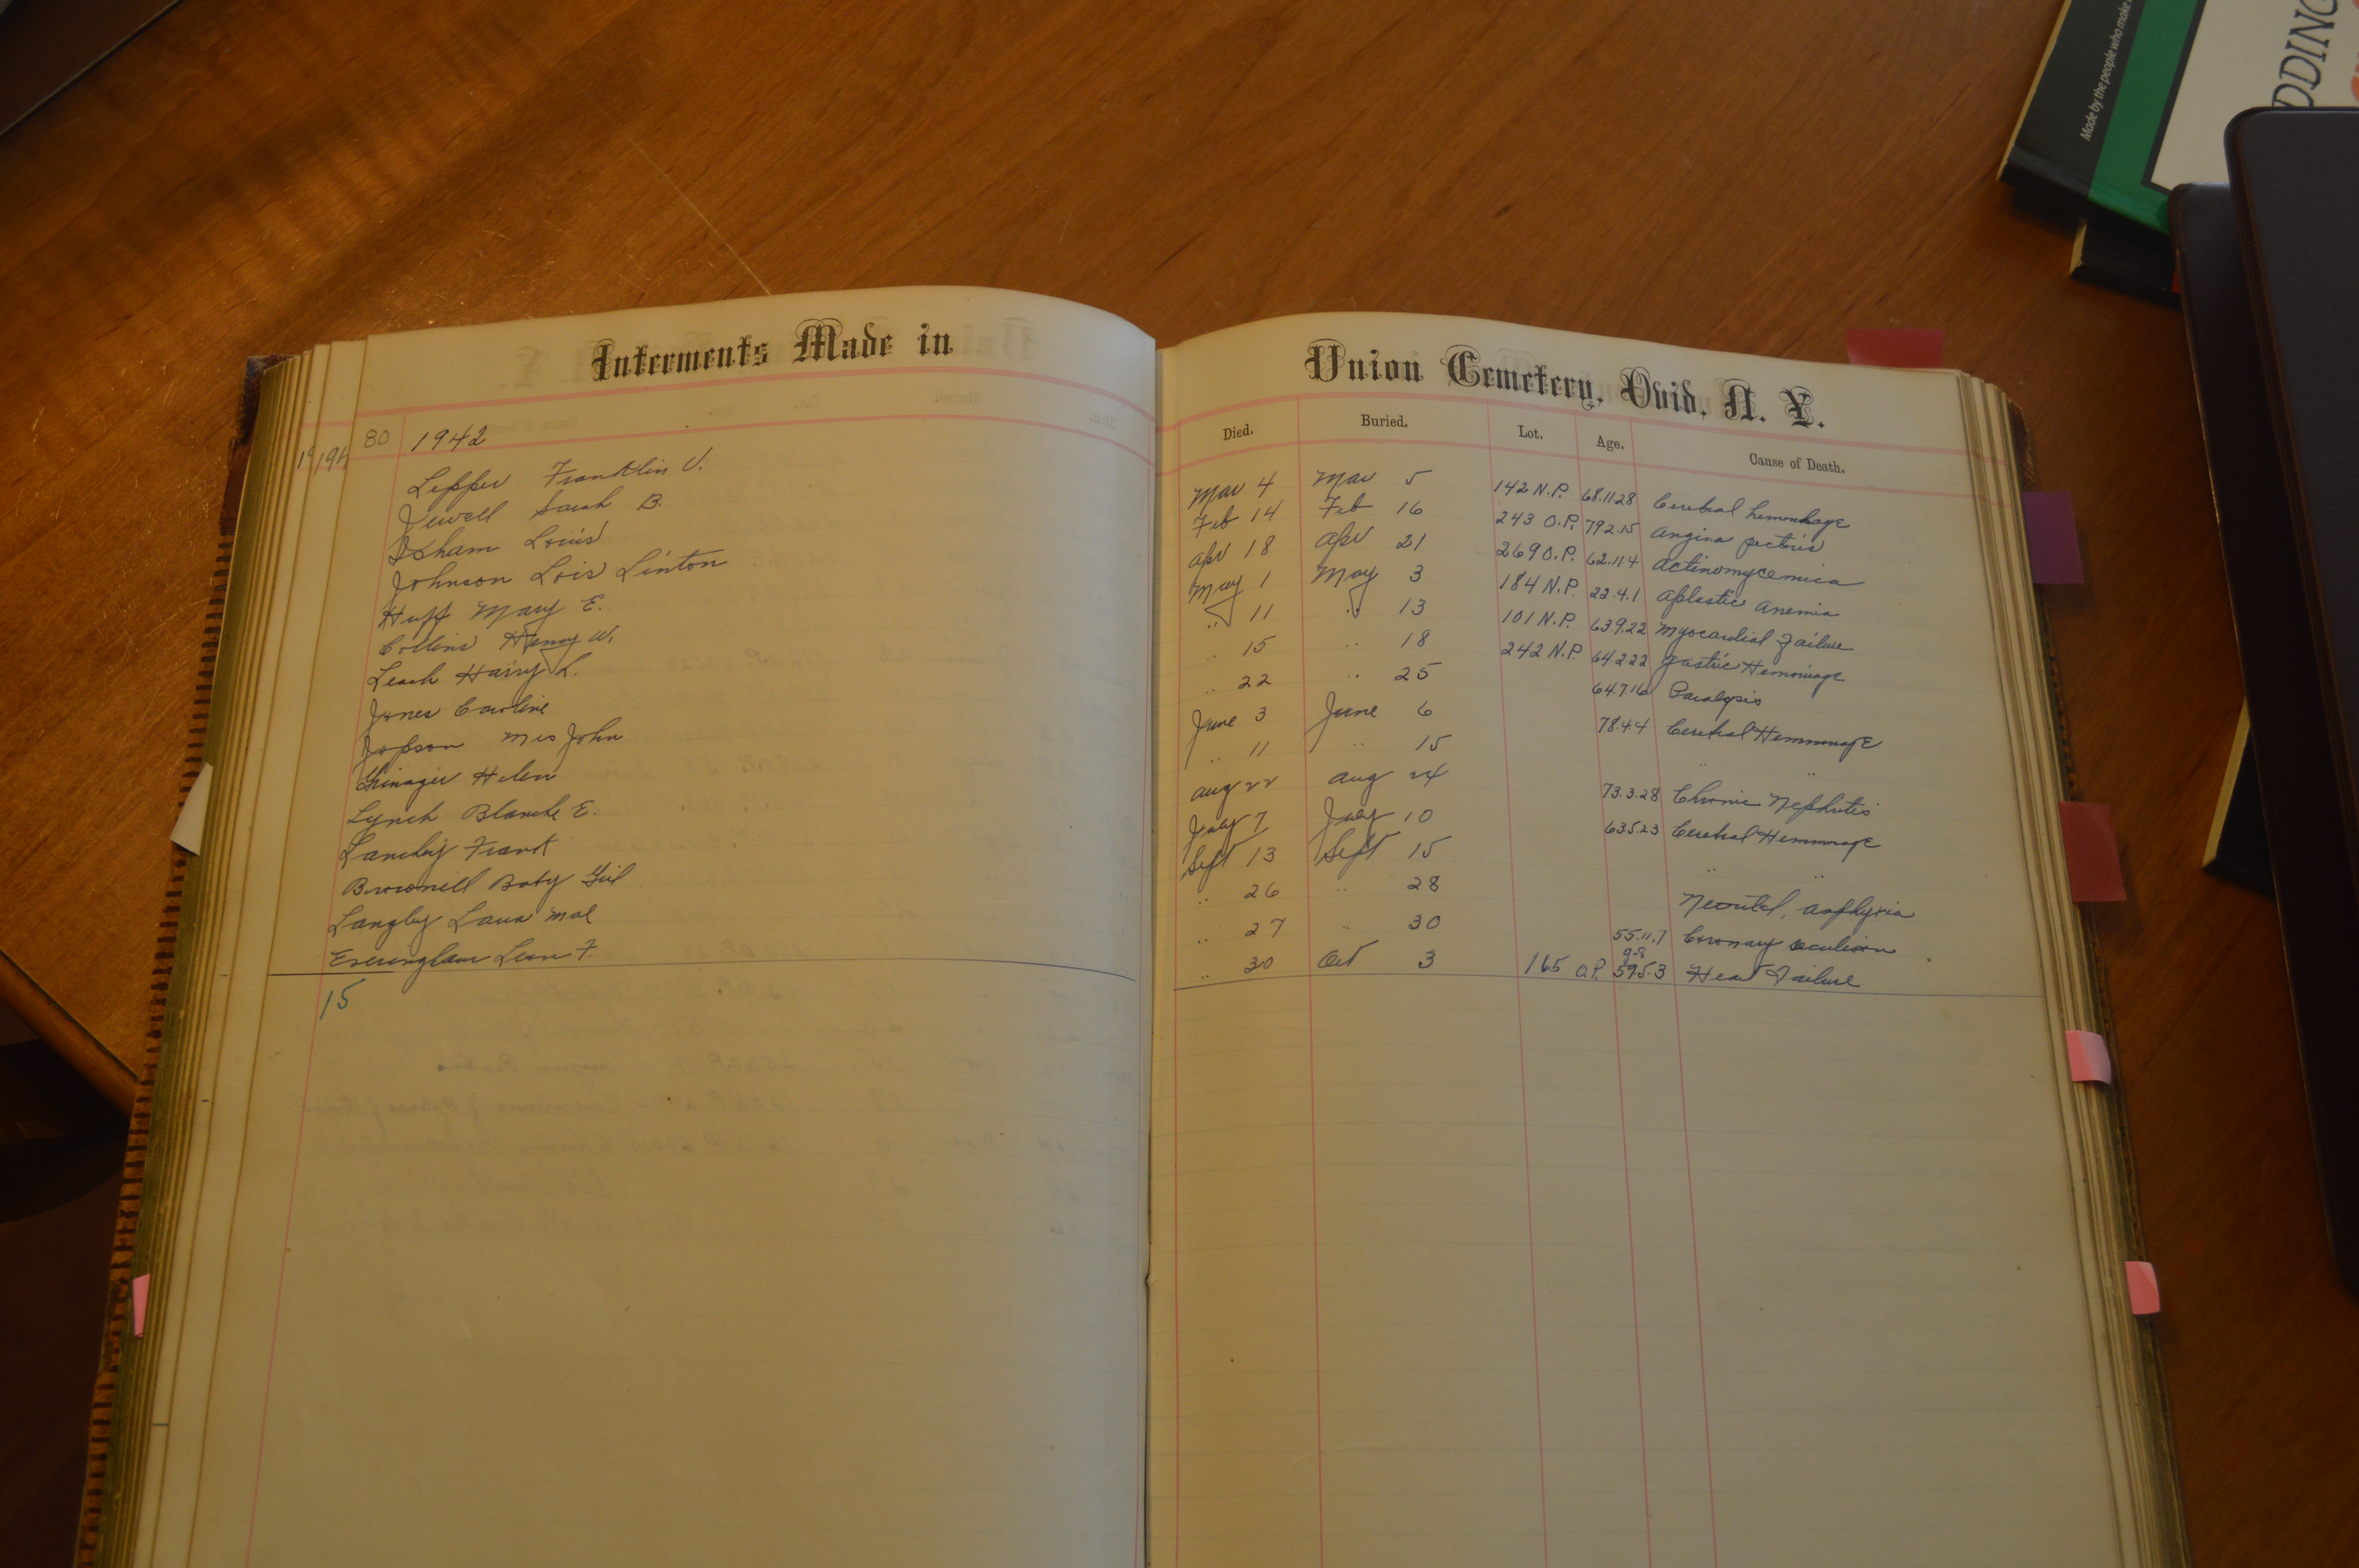 Made by the people who make
DDING
Interments Made in
Union Cemetery, Ovid, N. Y.
Died. Buried. Lot. Age. Cause of Death.
80 1942
Lepper Franklin V. Mar 4 Mar 5 142 N.P. 68.11.28 Cerebral hemorrhage
Jewell Sarah B. Feb 14 Feb 16 243 O.P. 79 2.15 Angina pectoris
Isham Louis Apr 18 Apr 21 269 O.P. 62.11.4
Johnson Lois Linton May 1 May 3 184 N.P. 22.4.1 Aplastic Anemia
Huff Mary E. .. 11 .. 13 101 N.P. 63.9.22 Myocardial Failure
Collins Henry W. .. 15 .. 18 242 N.P. 64 2 22 Gastric Hemorrage
Leach Harry L. .. 22 .. 25 64.7.16 Paralysis
Jones Caroline June 3 June 6 78.4.4 Cerebral Hemmorage
Jopson Mrs John .. 11 .. 15 .. ..
Helen Aug 22 Aug 24 73.3.28 Chronic Nephritis
Lynch Blanche E. July 7 July 10 63 5 23 Cerebral Hemmorage
Frank Sept 13 Sept 15 .. ..
Brownell Baby Girl .. 26 .. 28
Langby Laura Mae .. 27 .. 30 55.11.7 Coronary
F. .. 30 Oct 3 165 O.P. 59 5.3 Heart Failure
15